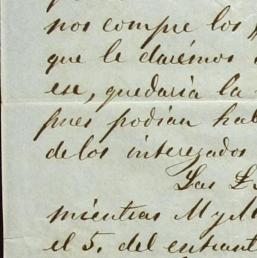 nos compre los
que le darémos
ese, quedaria la
pues podian hab
de los interezados
Las £
mientras M y M
el 5. del entrant